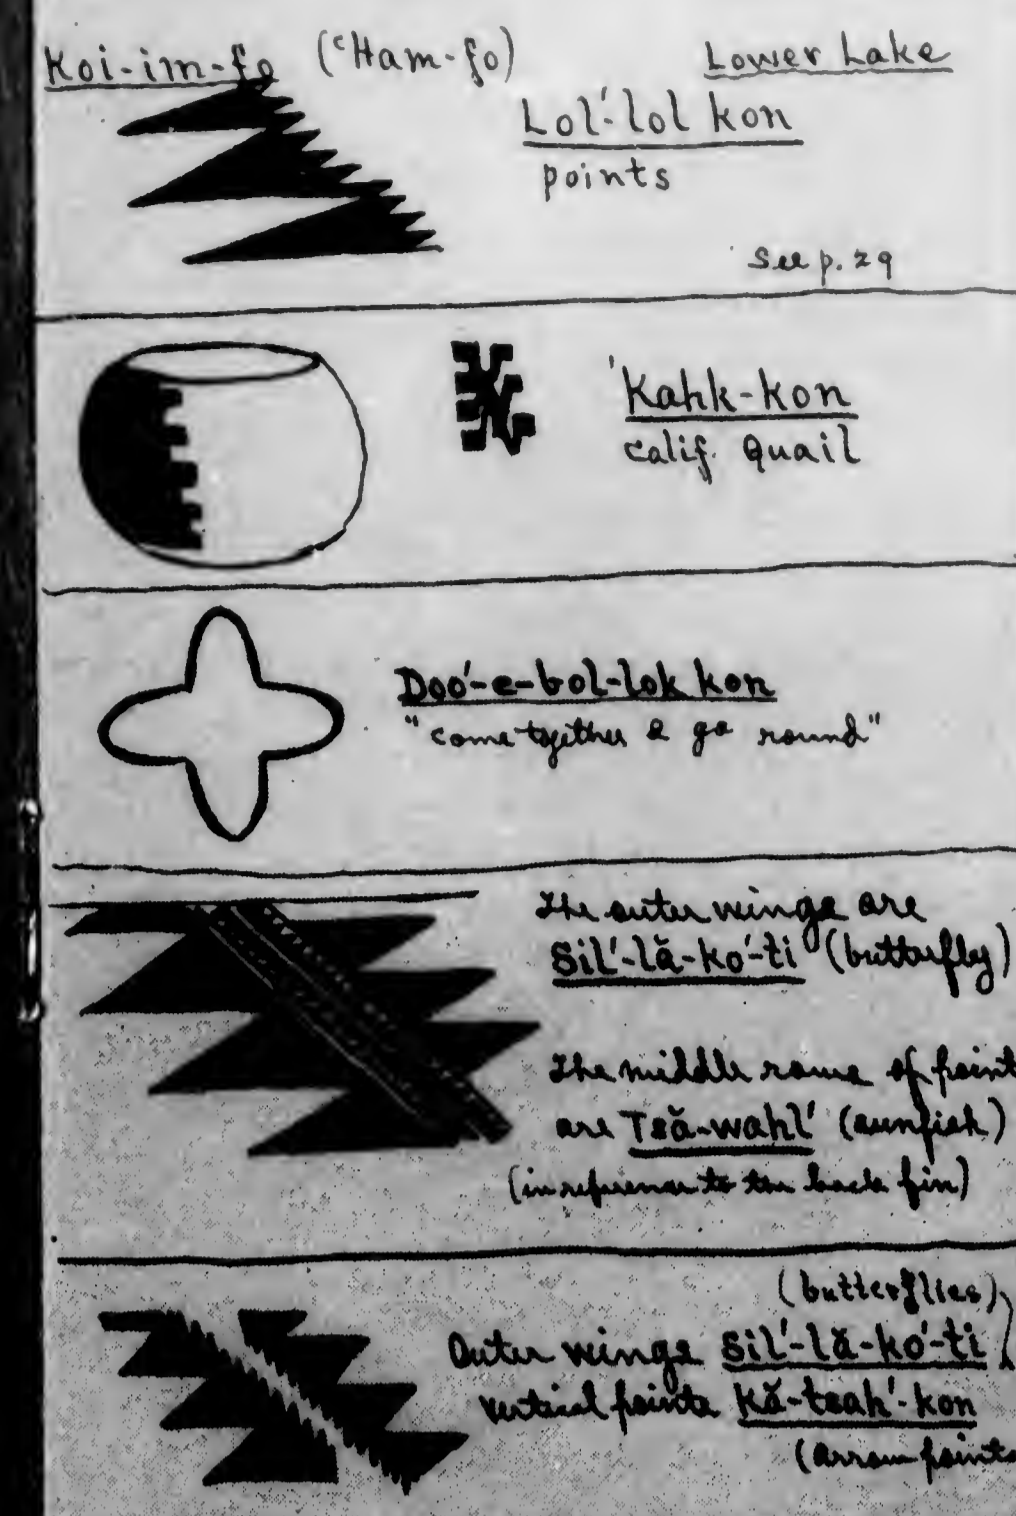 Koi-im-fo (ʿHam-fo) Lower Lake
Lol'-lol kon
points
See p. 29
'Kahk-kon
Calif. Quail
Doo'-e-bol-lok kon
"come together & go round"
The outer wings are
Sil'-lă-ko'-ti (butterfly)
The middle rows of point
are Tsă-wahl' (sunfish)
(in reference to the back fin)
(butterflies)
Outer wings Sil'-lă-ko'-ti
vertical points Kă-tsah'-kon
(arrow points